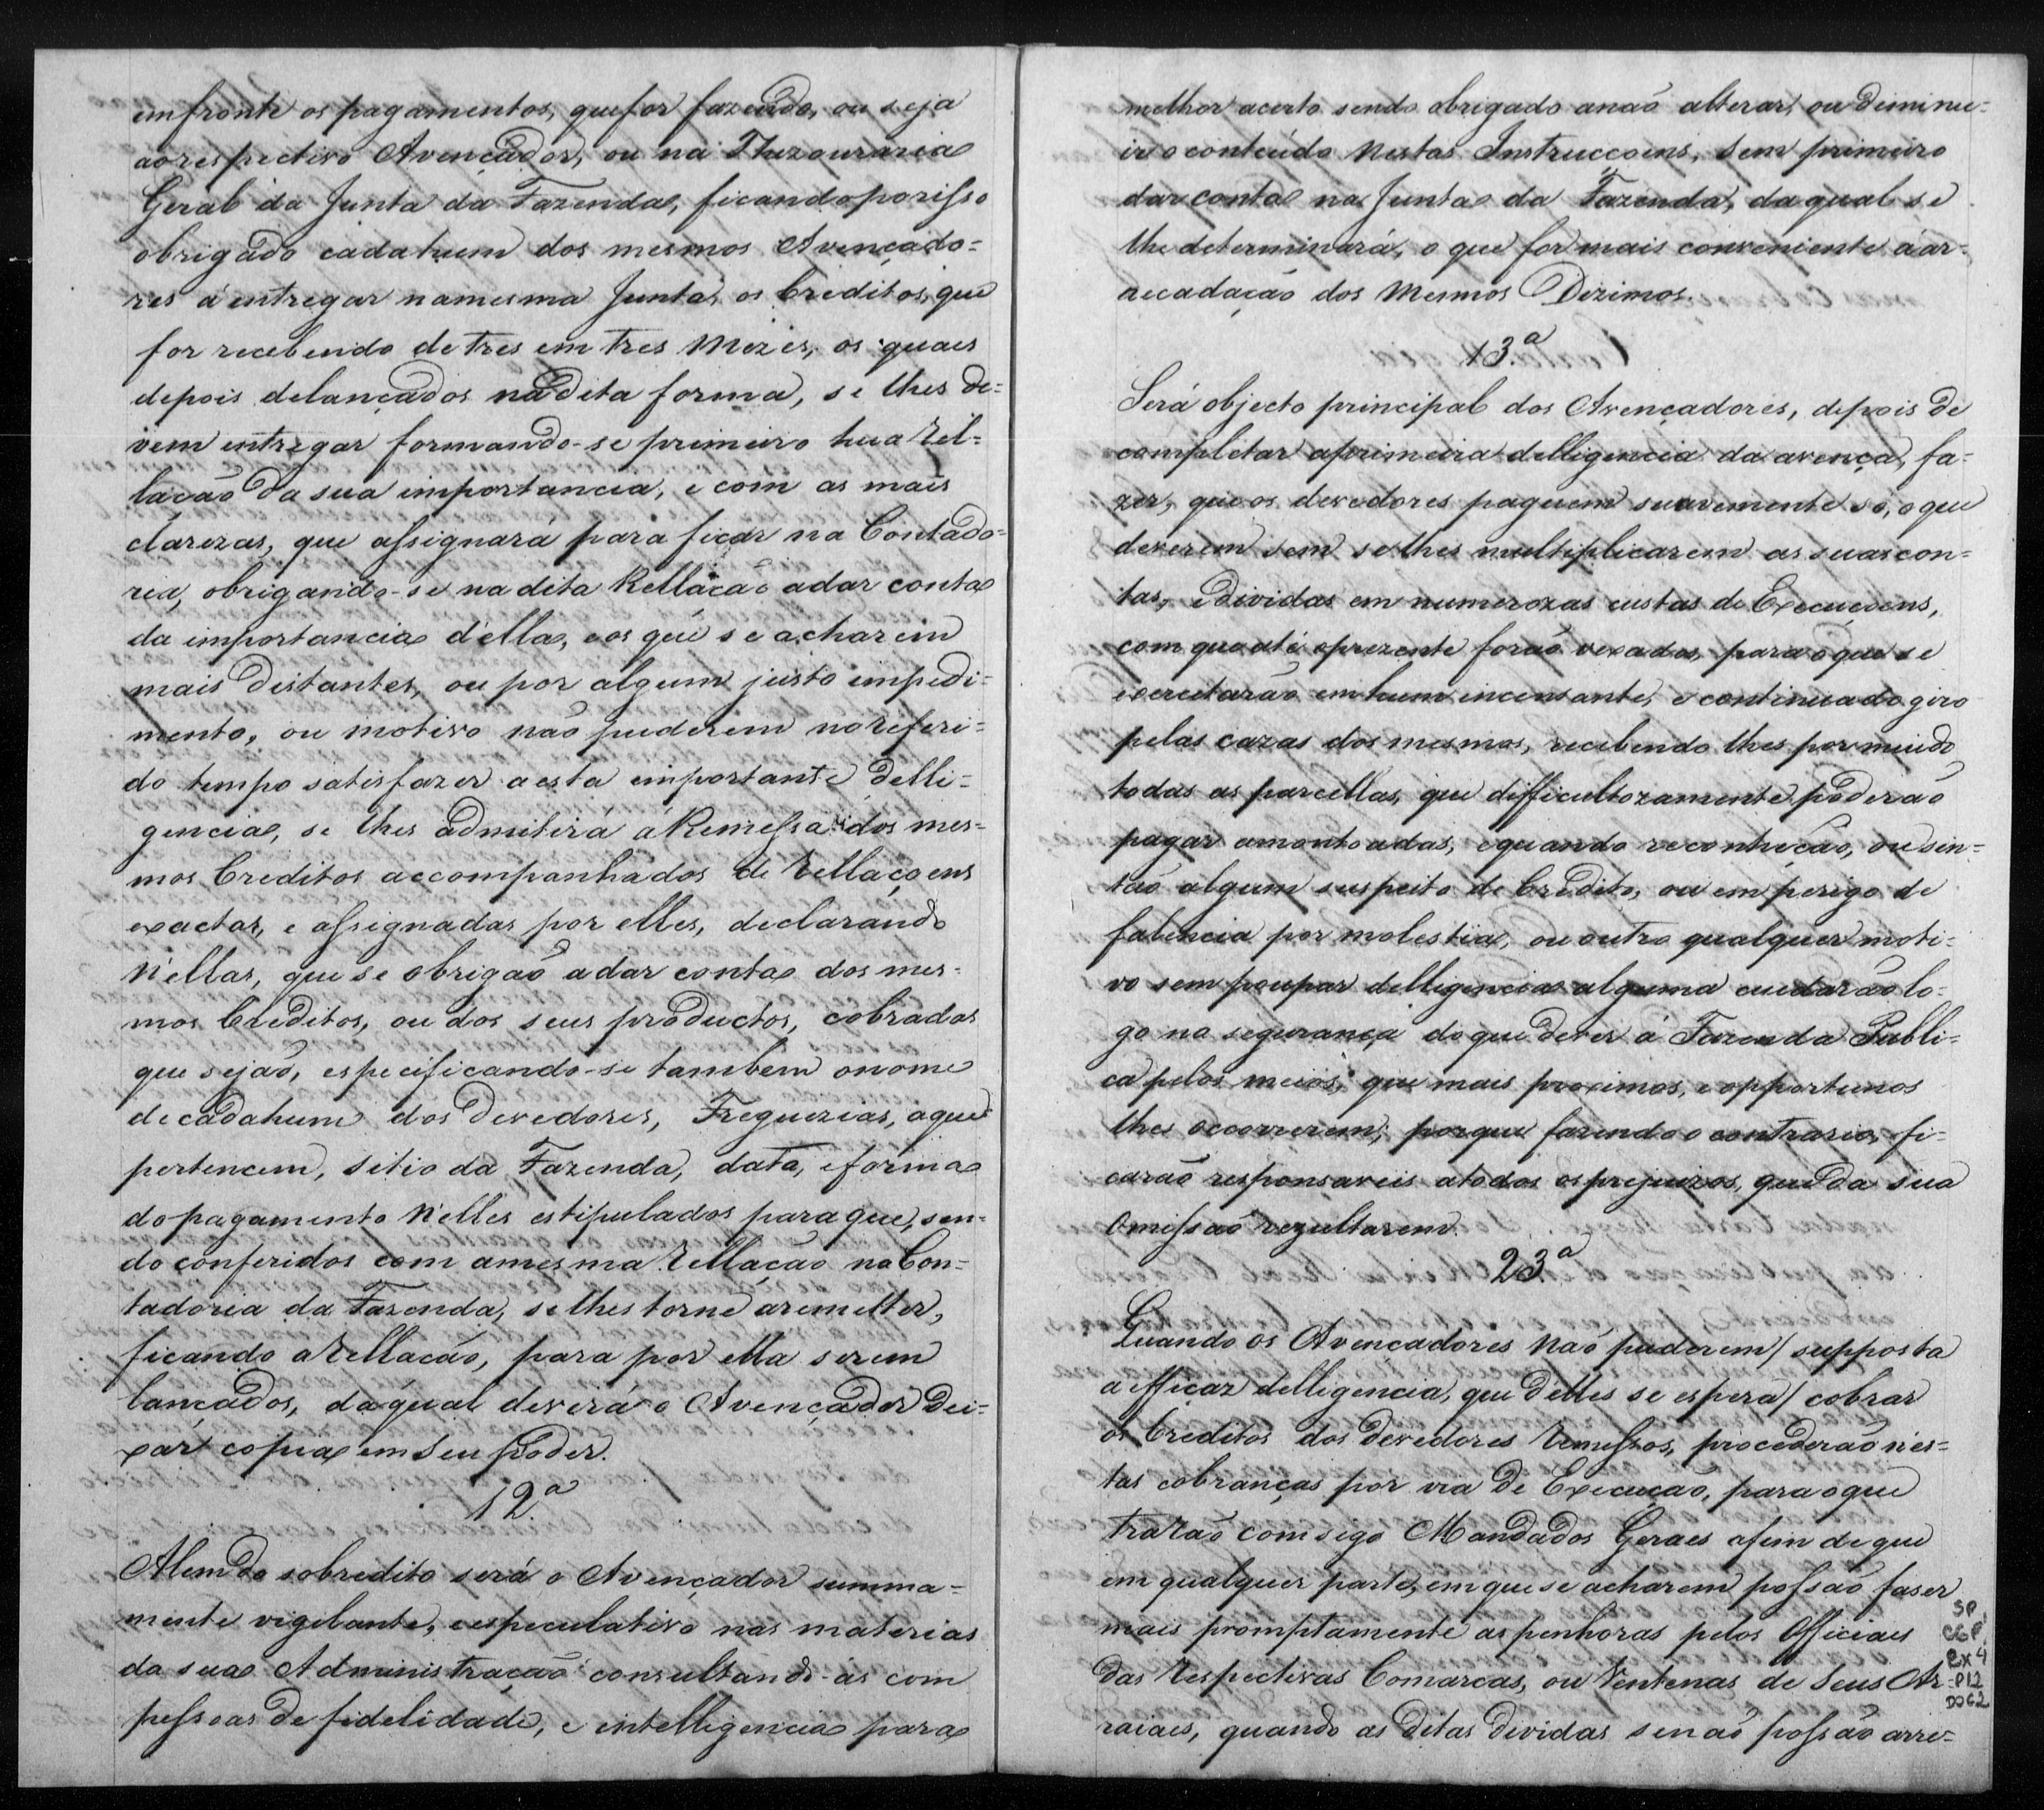 emfronte os pagamentos, quefor fazendo, ou seja
aorespectivo Avençador, ou na Thezouraria
Geral da Junta da Fazenda, ficandoporisso
obrigado cadahum dos mesmos Avençado=
res a entregar namesma Junta, os Creditos, que
for recebendo de tres em tres Mezes, os quaes
depois delançados nadita forma, se lhes de=
vem entregar formando-se primeiro hua Rel=
lação da sua importancia, e com as mais
clarezas, que assignará para ficar na Contado=
ria, obrigando-se na dita Rellação adar conta
da importancia d'ella, eos que se acharem
mais distantes, ou por algum justo impedi=
mento, ou motivo não puderem noreferi=
do tempo satisfazer aesta importante delli=
gencia, se lhes admitirá a Remessa dos mes=
mos Creditos accompanhados de Rellaçoens
exactas, e assignadas por elles, declarando
N'ellas, que se obrigão adar conta dos mes=
mos Creditos, ou dos seus productos, cobrados
que sejão, especificando-se tambem onome
decadahum dos devedores, Freguezias, aque
pertencem, sitio da Fazenda, data, eforma
dopagamento N'elles estipulados paraque, sen=
do conferidos com amesma Rellação na Con=
tadoria da Fazenda, selhes torne aremetter,
ficando aRellação, para por ella serem
lançados, daqual deverá o Avençador dei=
xar copia em seu poder.
12.ª
Alemdo sobredito será o Avençador summa=
mente vigilante, eespeculativo nas materias
da sua Administração consultando-as com
pessoas de fidelidade, e intelligencia para
melhor acerto sendo obrigado anão alterar, ou diminu=
ir o conteúdo Nestas Instruccoens, sem primeiro
dar conta na Junta da Fazenda, daqual se
lhe determinará, o que for mais conveniente á ar=
recadação dos Mesmos Dizimos.
13.ª
Será objecto principal dos Avençadores, depois de
completar aprimeira delligencia da avença, fa=
zer, que os devedores paguem suavemente só, o que
deverem sem selhes multiplicarem as suas con=
tas, edividas em numerozas custas de Execuçoens,
com que até oprezente forão vexados, para o que se
exercitarão emhum incensante, e continuado giro
pelas cazas dos mesmos, recebendo lhes por miudo
todas as parcellas, que difficultozamente poderão
pagar amontoadas, equando reconheção, ou sin=
tão algum suspeito de Credito, ou em perigo de
falencia por molestia, ou outro qualquer moti=
vo sem poupar delligencia alguma cuidarão lo=
go na segurança doque dever á Fazenda Publi=
ca pelos meios, que mais proximos, e opportunos
lhes occorrerem; porque fazendo o contrario, fi=
carão responsaveis atodos os prejuizos, que da sua
Omissão rezultarem.
23.ª
Quando os Avençadores Não puderem / supposta
a efficaz delligencia, que d'elles se espera / cobrar
os Creditos dos devedores Remessos, procederão n'es=
tas cobranças por via de Execução, para o que
trarão comsigo Mandados Geraes afim de que
em qualquer parte, em que se acharem possão faser
mais promptamente as penhoras pelos Officiaes
das Respectivas Comarcas, ou Ventenas de seus Ar=
raiaes, quando as ditas dividas senão possão arre=
SP
CGP
Cx 4
P12
DOC2